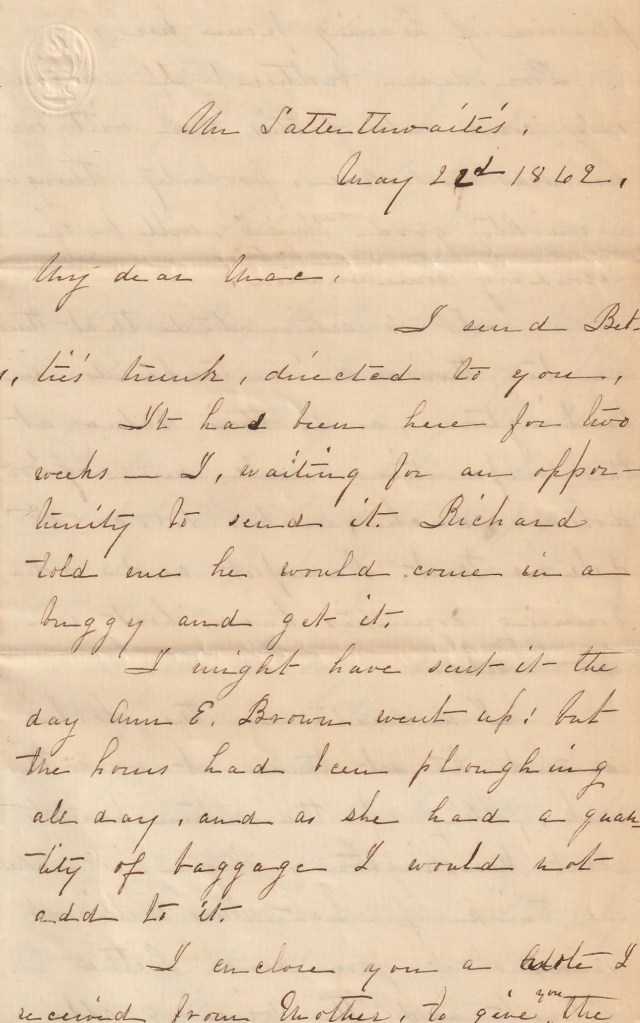 Mr Satterthwaite's.
May 22d 1862.
My dear Mac.
I send Bet-
tie's trunk, directed to you,
It has been here for two
weeks — I, waiting for an oppor-
tunity to send it. Richard
told me he would come in a
buggy and get it.
I might have sent it the
day Ann E. Brown went up; but
the horses had been ploughing
all day, and as she had a quan-
tity of baggage I would not
add to it.
I enclose you a note I
received from Mother, to give you the